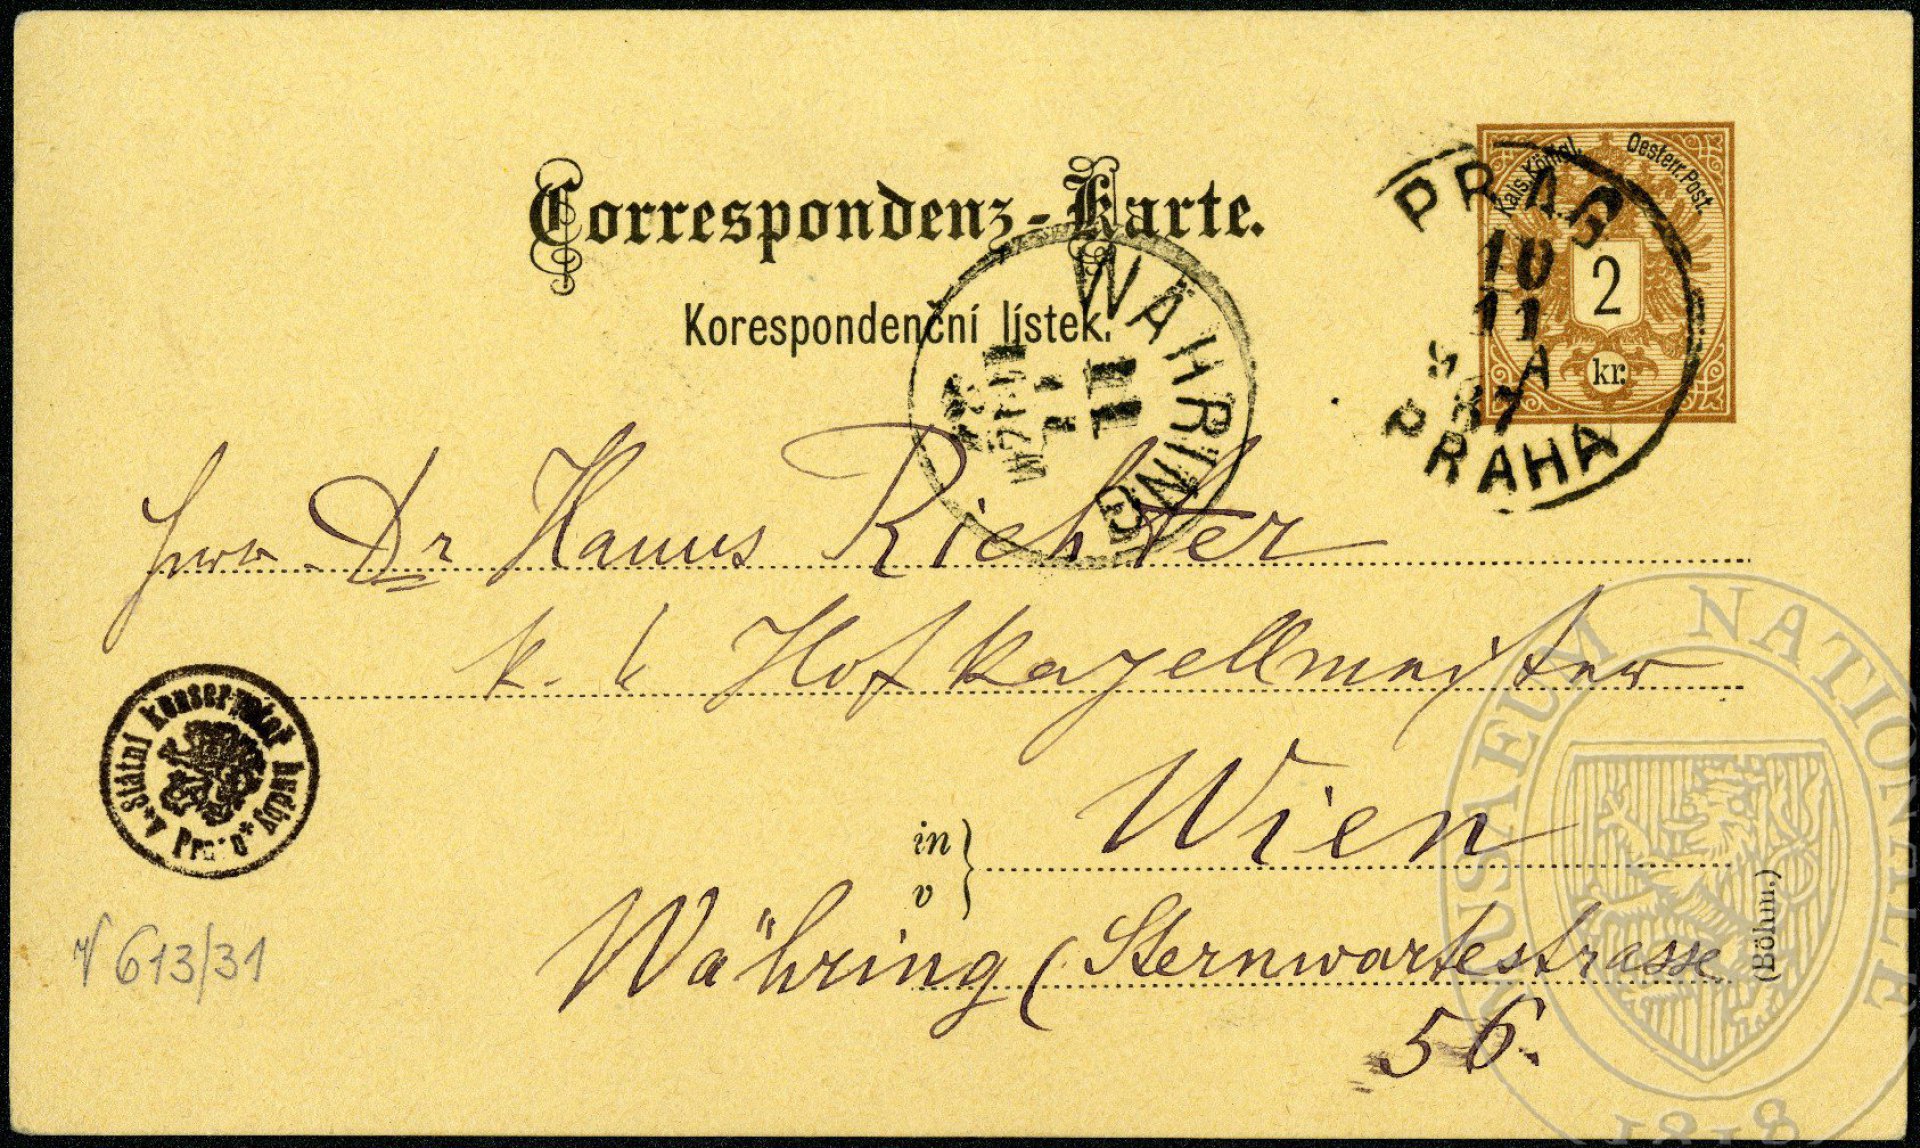 Correspondenz-Karte.
Korespondenční lístek.
Kais. Königl. Oesterr. Post.
2
kr.
PRAG
10
11
87
A
PRAHA
WÄHRING
Dr Hanns Richter
k. k Hofkapellmeister
in
v
Wien
Währing (Sternwartestrasse
56.
(Böhm.)
Státní konservatoř hudby v Praze
613/31
MUSAEUM NATIONALE
1818